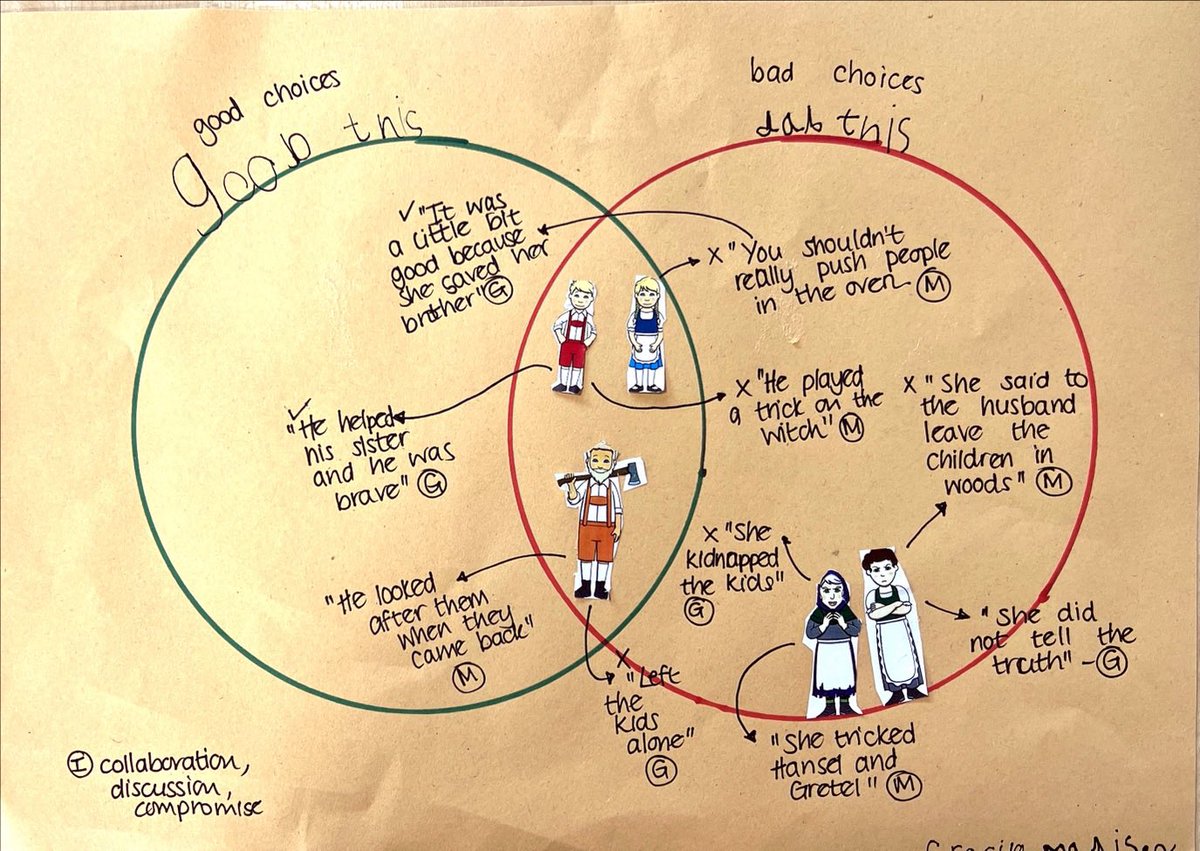 good choices
goob this
bad choices
dab this
✓"It was
a little bit
good because
she saved her
brother" G
x "You shouldn't
really push people
in the oven - M
✓
"He helped
his sister
and he was
brave" G
x "He played
a trick on the
witch" M
x "She said to
the husband
leave the
children in
woods" M
"He looked
after them
when they
came back"
M
x
"Left
the
kids
alone"
G
x "She
kidnapped
the kids"
G
"She did
not tell the
truth" - G
"She tricked
Hansel and
Gretel" M
I collaboration,
discussion,
compromise